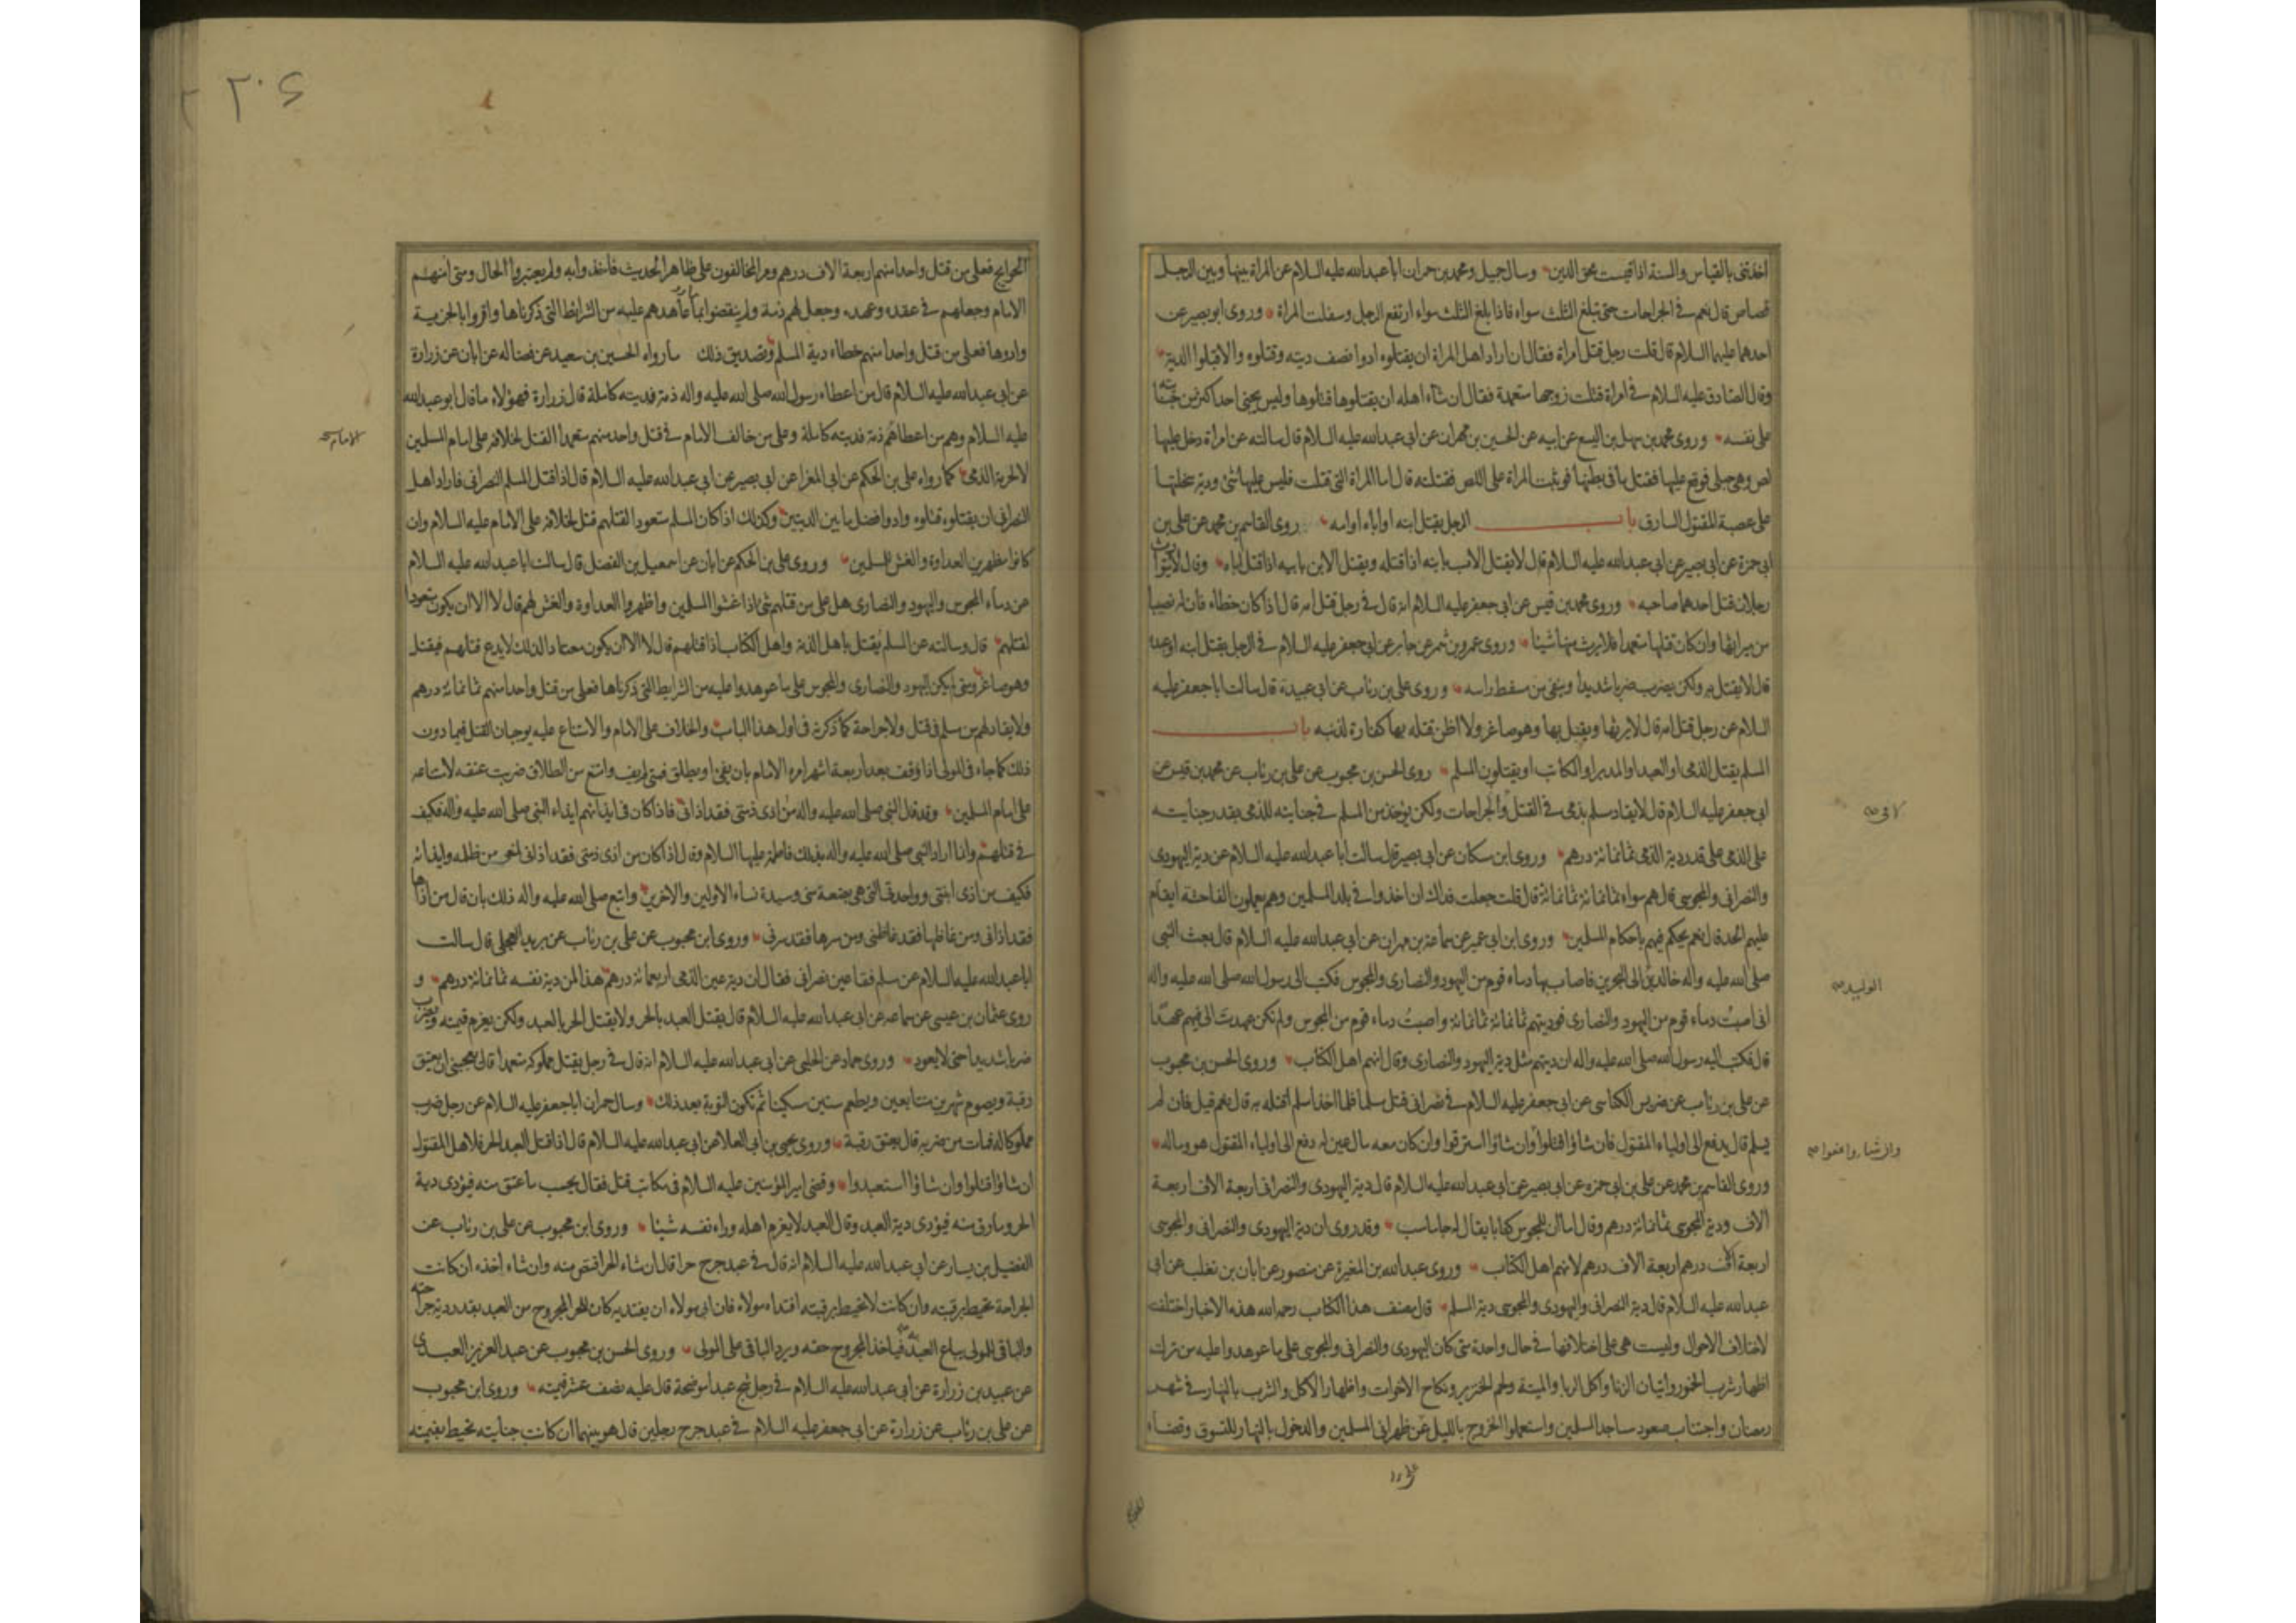 اخذتنی بالقیاس والسنة اذا قیست محق الدین وسال جمیل ومحمد بن حمران ابا عبدالله علیه السلام عن المراة بینها وبین الرجل
قصاص قال نعم فی الجراحات حتی تبلغ الثلث سواء فاذا بلغ الثلث سواء ارتفع الرجل وسفلت المراة وروی ابو بصیر عن
احدهما علیهما السلام قال قلت رجل قتل امراة فقال ان اراد اهل المراة ان یقتلوه ادوا نصف دیته وقتلوه والا قبلوا الدیة
وقال الصادق علیه السلام فی امراة قتلت زوجها متعمدة فقال ان شاء اهله ان یقتلوها قتلوها ولیس یجنی احد اکثر من جنایته
علی نفسه وروی محمد بن سهل بن الیسع عن ابیه عن الحسین بن مهران عن ابی عبدالله علیه السلام قال سالته عن امراة دخل علیها
لص وهی حبلی فوقع علیها فقتل ما فی بطنها فوثبت المراة علی اللص فقتلته قال اما المراة التی قتلت فلیس علیها شئ ودیة سخلتها
علی عصبة المقتول السارق باب الرجل یقتل ابنه او اباه او امه روی القاسم بن محمد عن علی بن
ابی حمزة عن ابی بصیر عن ابی عبدالله علیه السلام قال لا یقتل الاب بابنه اذا قتله ویقتل الابن بابیه اذا قتل اباه وقال لا یتوارث
رجلان قتل احدهما صاحبه وروی محمد بن قیس عن ابی جعفر علیه السلام انه قال فی رجل قتل امه قال اذا کان خطاء فان له نصیبا
من میراثها وان کان قتلها متعمدا فلا یرث منها شیئا وروی عمرو بن شمر عن جابر عن ابی جعفر علیه السلام فی الرجل یقتل ابنه او عبده
قال لا یقتل به ولکن یضرب ضربا شدیدا وینفی من مسقط راسه وروی علی بن رئاب عن ابی عبیدة قال سالت ابا جعفر علیه
السلام عن رجل قتل امه قال لا یرثها ویقتل بها وهو صاغر ولا اظن قتله بها کفارة لذنبه باب
المسلم یقتل الذمی او العبد او المدبر او المکاتب او یقتلون المسلم روی الحسن بن محبوب عن علی بن رئاب عن محمد بن قیس عن
ابی جعفر علیه السلام قال لا یقاد مسلم بذمی فی القتل والجراحات ولکن یؤخذ من المسلم فی جنایته للذمی بقدر جنایته
علی الذمی علی قدر دیة الذمی ثمانمائة درهم وروی ابن مسکان عن ابی بصیر قال سالت ابا عبدالله علیه السلام عن دیة الیهودی
والنصرانی والمجوسی قال هم سواء ثمانمائة ثمانمائة قال قلت جعلت فداك ان اخذوا فی بلد المسلمین وهم یعملون الفاحشة ایقام
علیهم الحد قال نعم یحکم فیهم باحکام المسلمین وروی ابن ابی عمیر عن سماعة بن مهران عن ابی عبدالله علیه السلام قال بعث النبی
صلی الله علیه واله خالد بن الی البحرین فاصاب بها دماء قوم من الیهود والنصاری والمجوس فکتب الی رسول الله صلی الله علیه واله
انی اصبت دماء قوم من الیهود والنصاری فودیتهم ثمانمائة ثمانمائة واصبت دماء قوم من المجوس ولم تکن عهدت الی فیهم عهدا
قال فکتب الیه رسول الله صلی الله علیه واله ان دیتهم مثل دیة الیهود والنصاری وقال انهم اهل الکتاب وروی الحسن بن محبوب
عن علی بن رئاب عن ضریس الکناسی عن ابی جعفر علیه السلام فی نصرانی قتل مسلما فلما اخذ اسلم اقتله به قال نعم قیل فان لم
یسلم قال یدفع الی اولیاء المقتول فان شاؤا قتلوا وان شاؤا استرقوا وان کان معه مال عین له دفع الی اولیاء المقتول هو وماله
وروی القاسم بن محمد عن علی بن ابی حمزه عن ابی بصیر عن ابی عبدالله علیه السلام قال دیة الیهودی والنصرانی اربعة الاف اربعة
الاف ودیة المجوسی ثمانمائة درهم وقال اما ان للمجوس کتابا یقال له جاماسب وقد روی ان دیة الیهودی والنصرانی والمجوسی
اربعة الاف درهم اربعة الاف درهم لانهم اهل الکتاب وروی عبدالله بن المغیرة عن منصور عن ابان بن تغلب عن ابی
عبدالله علیه السلام قال دیة النصرانی والیهودی والمجوسی دیة المسلم قال مصنف هذا الکتاب رحمه الله هذه الاخبار اختلفت
لاختلاف الاحوال ولیست هی علی اختلافها فی حال واحدة متی کان الیهودی والنصرانی والمجوسی علی ما عوهدوا علیه من ترك
اظهار شرب الخمور واتیان الزنا واکل الربا والمیتة ولحم الخنزیر ونکاح الاخوات واظهار الاکل والشرب بالنهار فی شهر
رمضان واجتناب صعود مساجد المسلمین واستعملوا الخروج باللیل عن ظهرانی المسلمین والدخول بالنهار للتسوق وقضاء
الولید
وان شاروا عفوا
۲۰۶
الحوایج فعلی من قتل واحدا منهم اربعة الاف درهم ومر المخالفون علی ظاهر الحدیث فاخذوا به ولم یعتبروا الحال ومتی امنهم
الامام وجعلهم فی عقده وعهده وجعل لهم ذمة ولم ینقضوا ما عاهدهم علیه من الشرایط التی ذکرناها واقروا بالجزیة
وادوها فعلی من قتل واحدا منهم خطاء دیة المسلم وتصدیق ذلك ما رواه الحسین بن سعید عن فضاله عن ابان عن زرارة
عن ابی عبدالله علیه السلام قال من اعطاه رسول الله صلی الله علیه واله ذمة فدیته کاملة قال زرارة فهؤلاء ما قال ابو عبدالله
علیه السلام وهم من اعطاهم ذمة فدیته کاملة وعلی من خالف الامام فی قتل واحد منهم متعمدا القتل لخلافه علی امام المسلمین
لا لحرمة الذمی کما رواه علی بن الحکم عن ابی المغرا عن ابی بصیر عن ابی عبدالله علیه السلام قال اذا قتل المسلم النصرانی فاراد اهل
النصرانی ان یقتلوه قتلوه وادوا فضل ما بین الدیتین وکذلك اذا کان المسلم متعود القتلهم قتل لخلافه علی الامام علیه السلام وان
کانوا مظهرین العداوة والغش للمسلمین وروی علی بن الحکم عن ابان عن اسمعیل بن الفضل قال سالت ابا عبدالله علیه السلام
عن دماء المجوس والیهود والنصاری هل علی من قتلهم شئ اذا غشوا المسلمین واظهروا العداوة والغش لهم قال لا الا ان یکون متعودا
لقتلهم قال وسالته عن المسلم یقتل باهل الذمة واهل الکتاب اذا قتلهم قال لا الا ان یکون معتادا لذلك لا یدع قتلهم فیقتل
وهو صاغر ومتی لم یکن الیهود والنصاری والمجوس علی ما عوهدوا علیه من الشرایط التی ذکرناها فعلی من قتل واحدا منهم ثمانمائة درهم
ولا یقاد لهم من مسلم فی قتل ولا جراحة کما ذکرته فی اول هذا الباب والخلاف علی الامام والامتناع علیه یوجبان القتل فیما دون
ذلك کما جاء فی المولی اذا وقف بعد اربعة اشهر امره الامام بان یفئ او یطلق فمتی لم یف وامتنع من الطلاق ضربت عنقه لامتناعه
علی امام المسلمین وقد قال النبی صلی الله علیه واله من اذی ذمتی فقد اذانی فاذا کان فی ایذائهم ایذاء النبی صلی الله علیه واله فکیف
فی قتلهم وانما اراد النبی صلی الله علیه واله بذلك فاطمة علیها السلام وقال اذا کان من اذی ذمتی فقد اذانی لنهی من ظلمه وایذائه
فکیف من اذی ابنتی وواحدتی التی هی بضعة منی وسیدة نساء الاولین والاخرین واتبع صلی الله علیه واله ذلك بان قال من اذاها
فقد اذانی ومن غاظها فقد غاظنی ومن سرها فقد سرنی وروی ابن محبوب عن علی بن رئاب عن برید العجلی قال سالت
ابا عبدالله علیه السلام عن مسلم فقا عین نصرانی فقال ان دیة عین الذمی اربعمائة درهم هذا لمن دیة نفسه ثمانمائة درهم و
روی عثمان بن عیسی عن سماعه عن ابی عبدالله علیه السلام قال یقتل العبد بالحر ولا یقتل الحر بالعبد ولکن یغرم قیمته ویضرب
ضربا شدیدا حتی لا یعود وروی حماد عن الحلبی عن ابی عبدالله علیه السلام انه قال فی رجل یقتل مملوکه متعمدا قال یعجبنی ان یعتق
رقبة ویصوم شهرین متتابعین ویطعم ستین مسکینا ثم تکون التوبة بعد ذلك وسال حمران ابا جعفر علیه السلام عن رجل ضرب
مملوکا له فمات من ضربه قال یعتق رقبة وروی یحیی بن ابی العلا عن ابی عبدالله علیه السلام قال اذا قتل العبد الحر فلاهل المقتول
ان شاؤا قتلوا وان شاؤا استعبدوا وقضی امیر المؤمنین علیه السلام فی مکاتب قتل فقال یحسب ما عتق منه فیؤدی دیة
الحر وما رق منه فیؤدی دیة العبد وقال العبد لا یغرم اهله وراء نفسه شیئا وروی ابن محبوب عن علی بن رئاب عن
الفضیل بن یسار عن ابی عبدالله علیه السلام انه قال فی عبد جرح حرا قال ان شاء الحر اقتص منه وان شاء اخذه ان کانت
الجراحة تحیط برقبته وان کانت لا تحیط برقبته افتداه مولاه فان ابی مولاه ان یفتدیه کان للحر المجروح من العبد بقدر دیة جراحته
والباقی للمولی یباع العبد فیاخذ المجروح حقه ویرد الباقی علی المولی وروی الحسن بن محبوب عن عبد العزیز العبدی
عن عبید بن زرارة عن ابی عبدالله علیه السلام فی رجل شج عبدا موضحة قال علیه نصف عشر قیمته وروی ابن محبوب
عن علی بن رئاب عن زرارة عن ابی جعفر علیه السلام فی عبد جرح رجلین قال هو بینهما ان کانت جنایته تحیط بقیمته
الامام